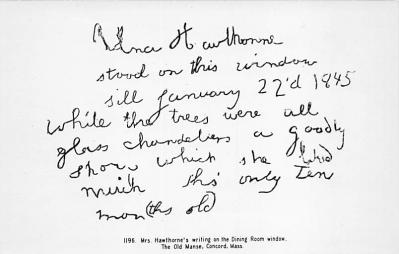 Una Hawthorne
stood on this window
sill January 22'd 1845
while the trees were all
glass chandeliers a goodly
show which she liked
much tho' only ten
months old
1196. Mrs. Hawthorne's writing on the Dining Room window.
The Old Manse, Concord, Mass.